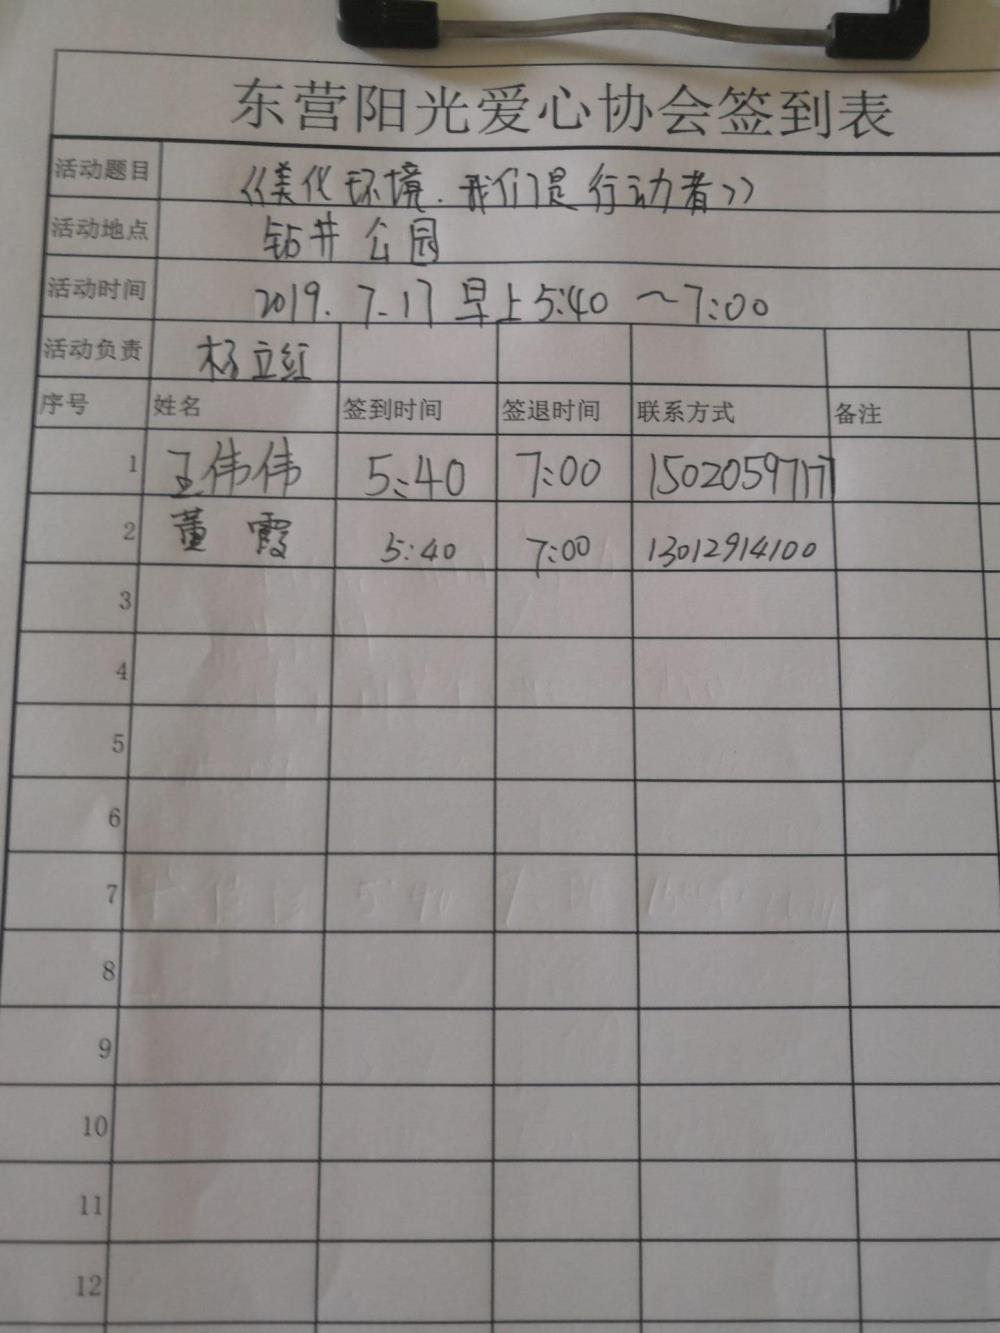 东营阳光爱心协会签到表
活动题目 《美化环境.我们是行动者》
活动地点 钻井公园
活动时间 2019.7.17早上5:40～7:00
活动负责 杨立红
序号 姓名 签到时间 签退时间 联系方式 备注
1 王伟伟 5:40 7:00 15020597177
2 董霞 5:40 7:00 13012914100
3
4
5
6
7
8
9
10
11
12